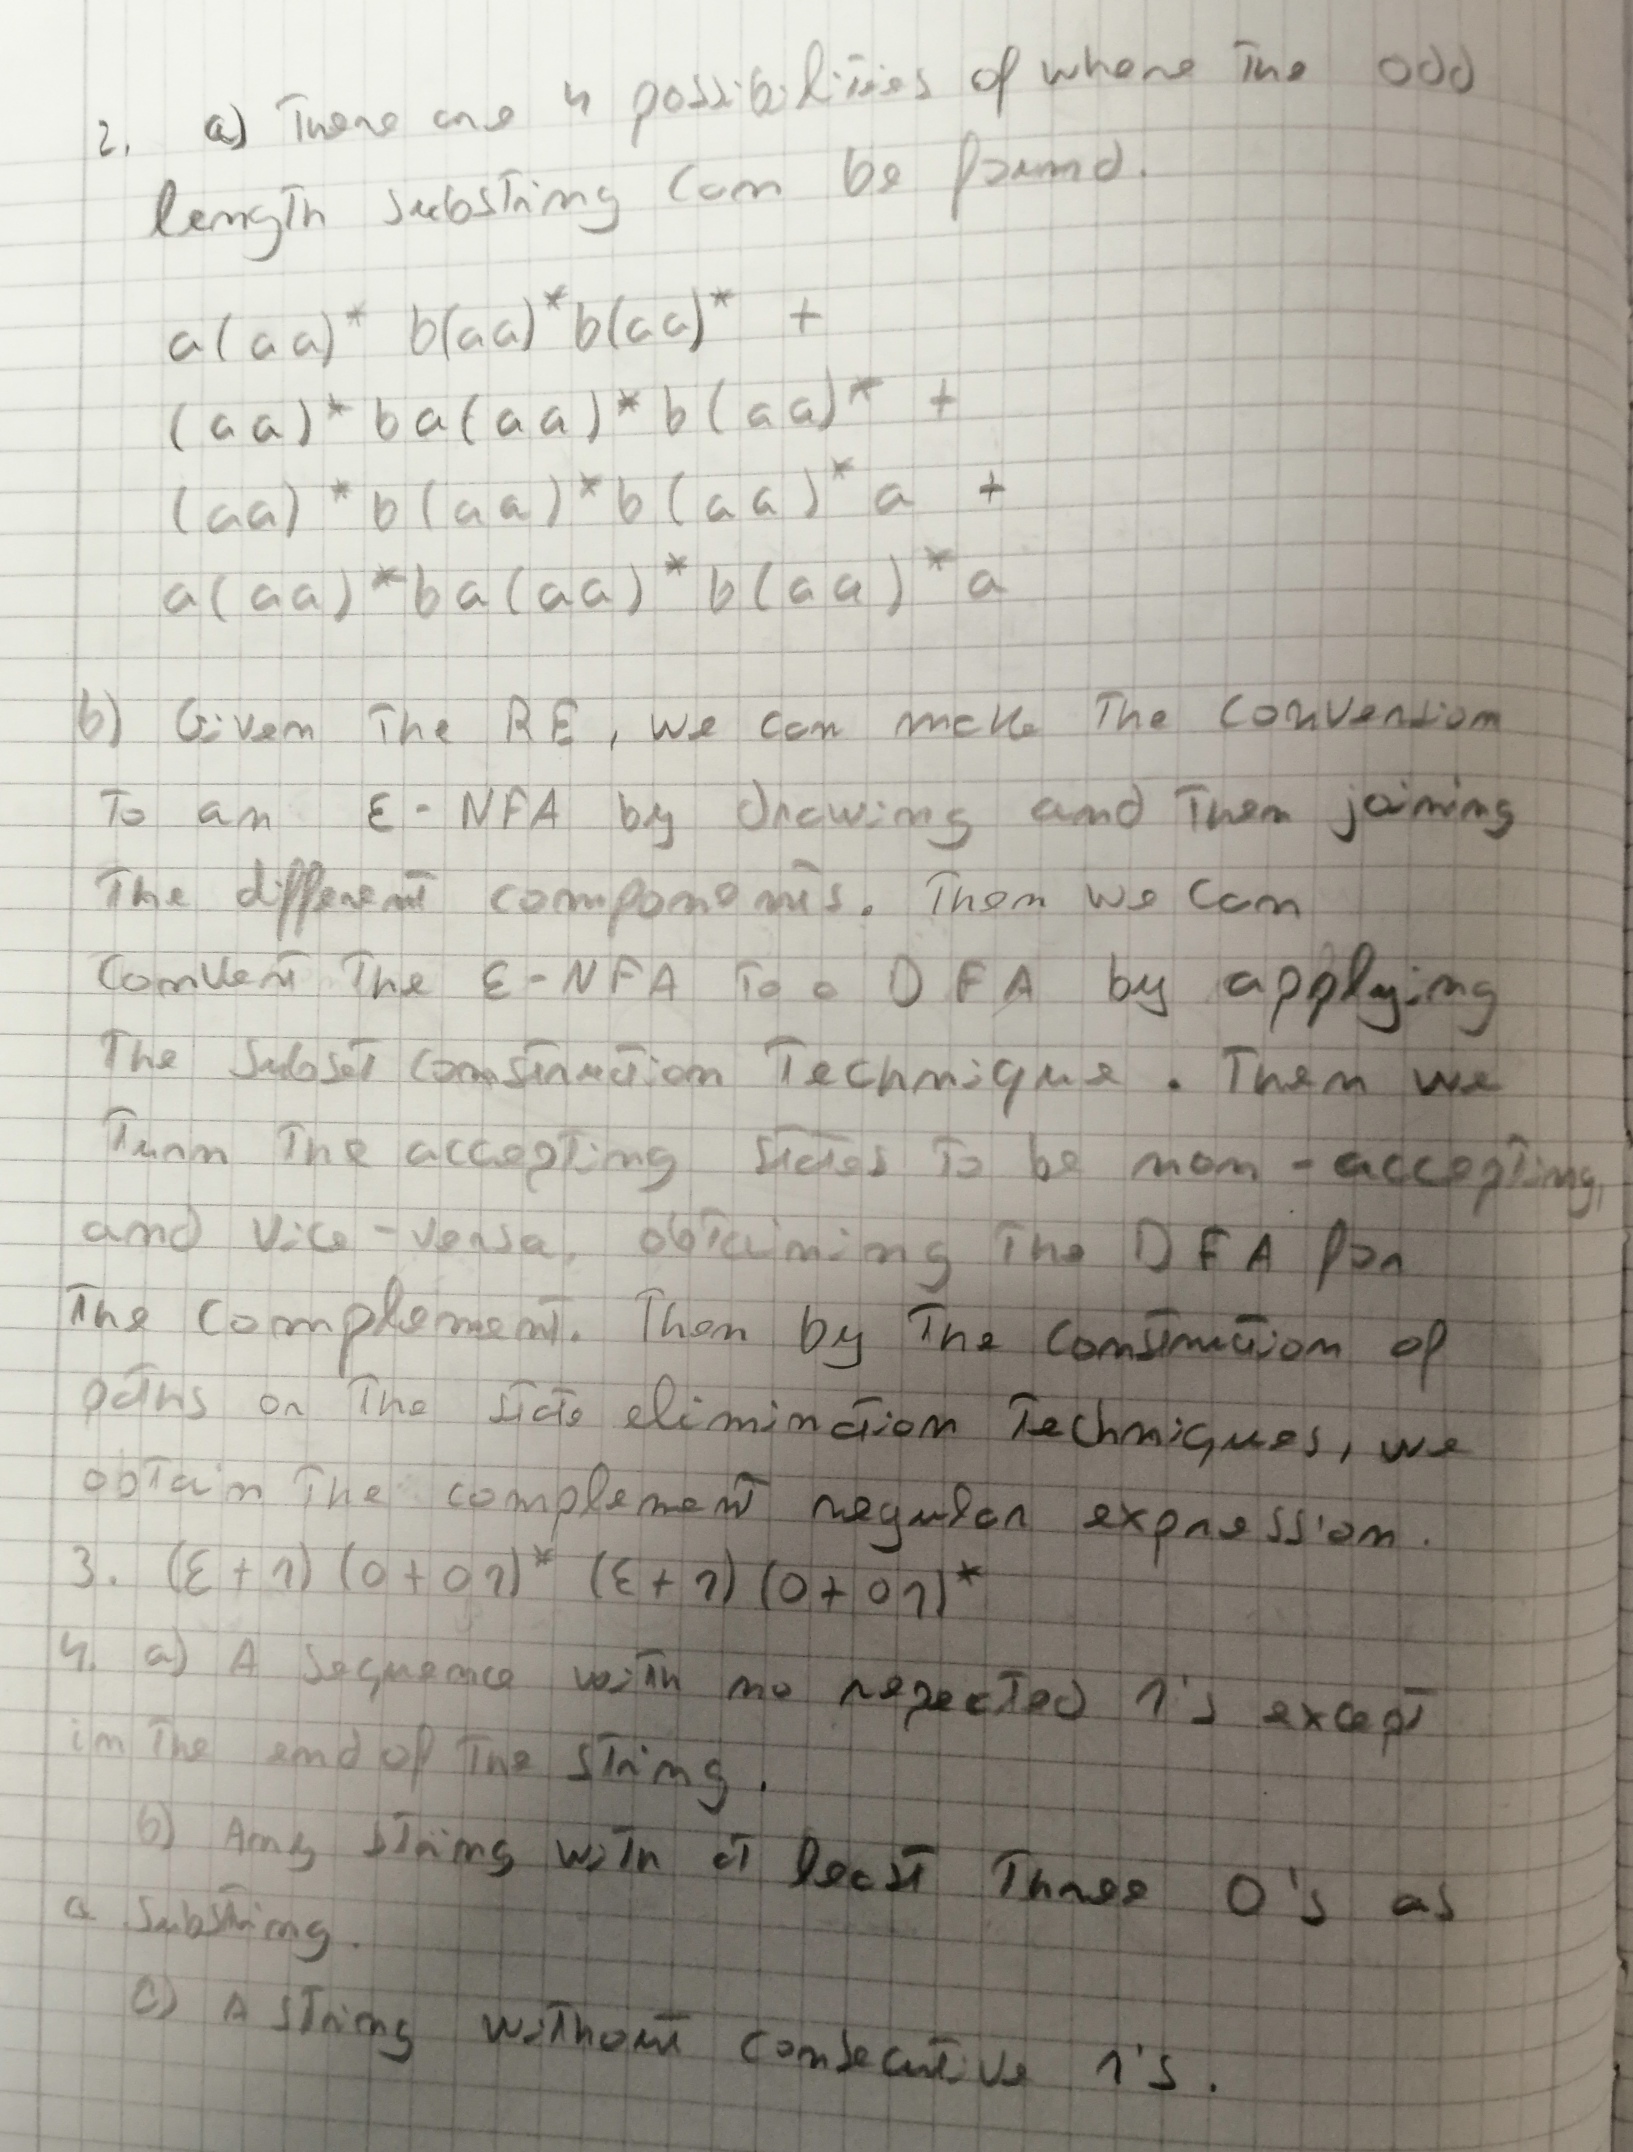 2. a) There are 4 possibilities of where the odd
length substring can be found.
a(aa)* b(aa)*b(aa)* +
(aa)*ba(aa)*b(aa)* +
(aa)*b(aa)*b(aa)*a +
a(aa)*ba(aa)*b(aa)*a
b) Given the RE, we can make the conversion
to an ε-NFA by drawing and then joining
the different components. Then we can
convert the ε-NFA to a DFA by applying
the subset construction technique. Then we
turn the accepting states to be non-accepting,
and vice-versa, obtaining the DFA for
the complement. Then by the construction of
paths or the state elimination techniques, we
obtain the complement regular expression.
3. (ε+1)(0+01)* (ε+1)(0+01)*
4. a) A sequence with no repeated 1's except
in the end of the string.
b) Any string with at least three 0's as
a substring.
c) A string without consecutive 1's.